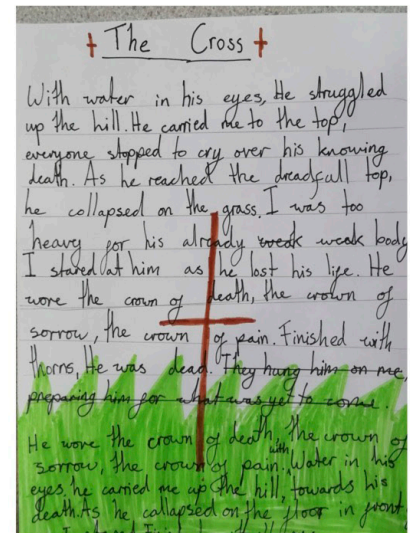 The Cross
With water in his eyes, He struggled
up the hill. He carried me to the top,
everyone stopped to cry over his knowing
death. As he reached the dreadfull top,
he collapsed on the grass. I was too
heavy for his already weak weak body
I stared at him as he lost his life. He
wore the crown of death, the crown of
sorrow, the crown of pain. Finished with
thorns, He was dead. They hung him on me,
preparing him for what was yet to come.
He wore the crown of death, the crown of
sorrow, the crown of pain. with Water in his
eyes, he carried me up the hill, towards his
death. As he callapsed on the floor in front